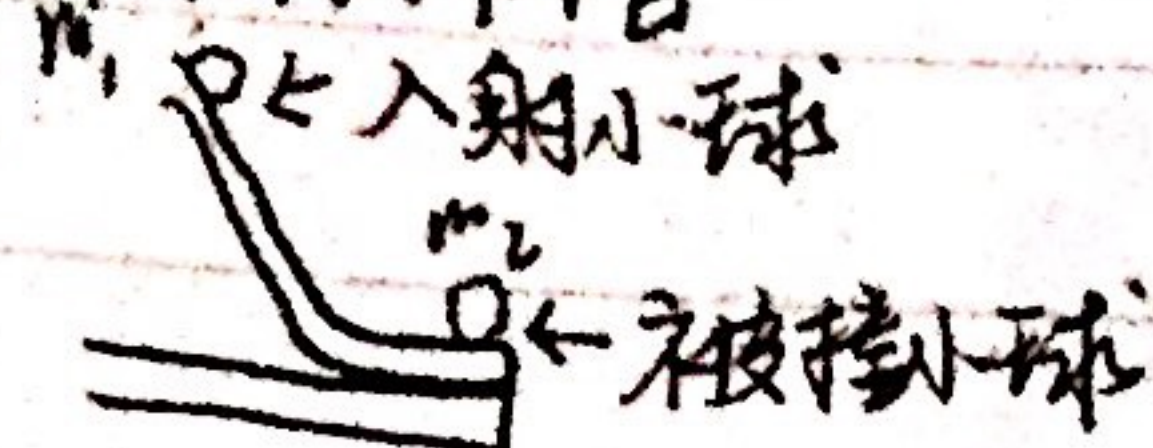 m₁
← 入射小球
m₂
← 被撞小球